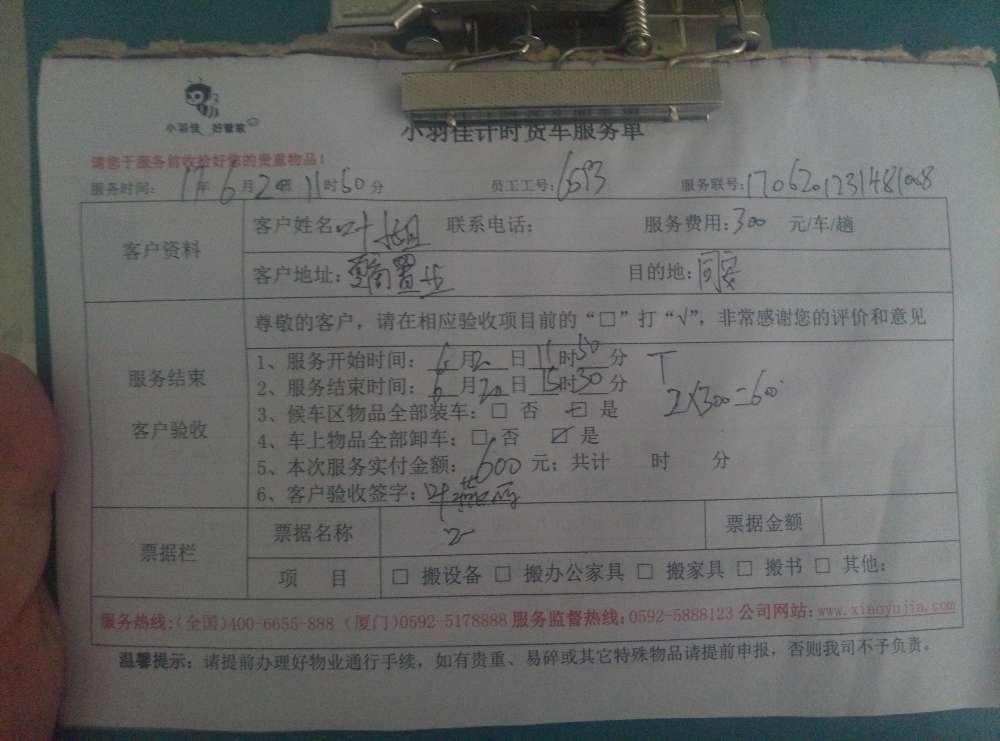 小羽佳 好管家
小羽佳计时货车服务单
请您于服务前收捡好您的贵重物品!
服务时间: 17年6月20日11时50分 员工工号: 6593 服务联号: 1706201231481008
客户资料
客户姓名: 叶 联系电话: 服务费用: 300 元/车/趟
客户地址: 目的地: 同安
服务结束
客户验收
尊敬的客户，请在相应验收项目前的“□”打“√”，非常感谢您的评价和意见
1、服务开始时间: 6月20日11时50分
2、服务结束时间: 6月20日15时30分
2×300=600
3、候车区物品全部装车: □ 否 □ 是
4、车上物品全部卸车: □ 否 ☑ 是
5、本次服务实付金额: 600 元; 共计 时 分
6、客户验收签字: 叶
票据栏
票据名称 票据金额
项 目 □ 搬设备 □ 搬办公家具 □ 搬家具 □ 搬书 □ 其他:
服务热线:(全国)400-6655-888 (厦门)0592-5178888 服务监督热线:0592-5888123 公司网站:www.xiaoyujia.com
温馨提示: 请提前办理好物业通行手续，如有贵重、易碎或其它特殊物品请提前申报，否则我司不予负责。